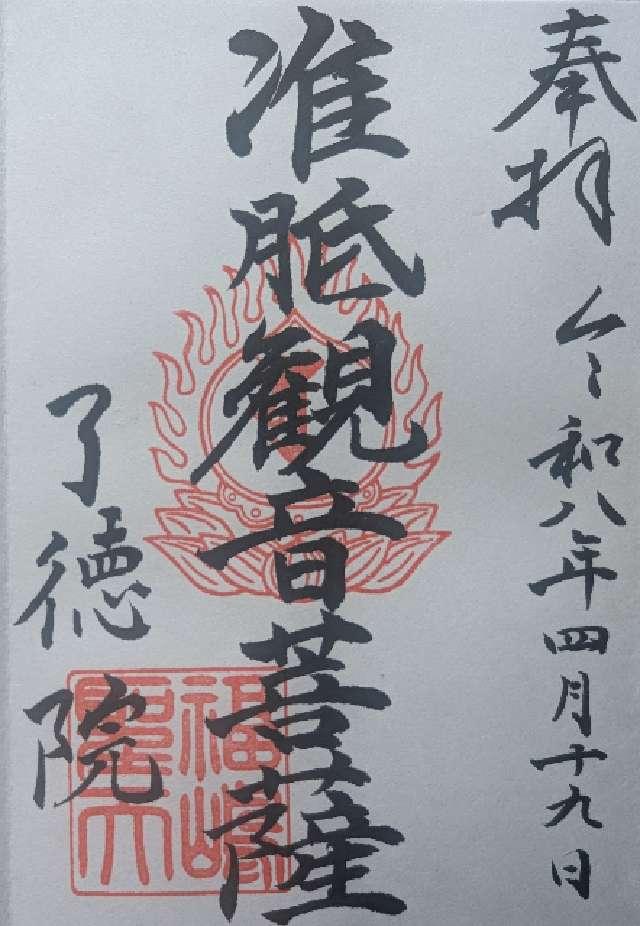 奉拝
令和八年四月十九日
准胝観音菩薩
了徳院
福島
聖天